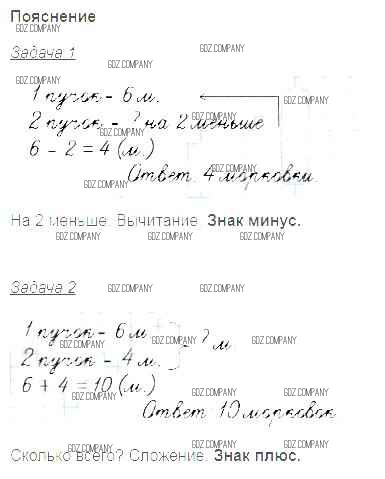 Пояснение
GDZ.COMPANY
GDZ.COMPANY
Задача 1
GDZ.COMPANY
GDZ.COMPANY
1 пучок - 6 м.
GDZ.COMPANY
2 пучок - ? на 2 меньше
GDZ.COMPANY
GDZ.COMPANY
6 - 2 = 4 (м.)
GDZ.COMPANY
Ответ 4 морковки.
GDZ.COMPANY
На 2 меньше. Вычитание. Знак минус.
GDZ.COMPANY GDZ.COMPANY GDZ.COMPANY
Задача 2
GDZ.COMPANY GDZ.COMPANY
1 пучок - 6 м
GDZ.COMPANY GDZ.COMPANY GDZ.COMPANY
- ? м
2 пучок - 4 м.
6 + 4 = 10 (м.)
GDZ.COMPANY GDZ.COMPANY GDZ.COMPANY
Ответ 10 морковок
GDZ.COMPANY GDZ.COMPANY GDZ.COMPANY
Сколько всего? Сложение. Знак плюс.